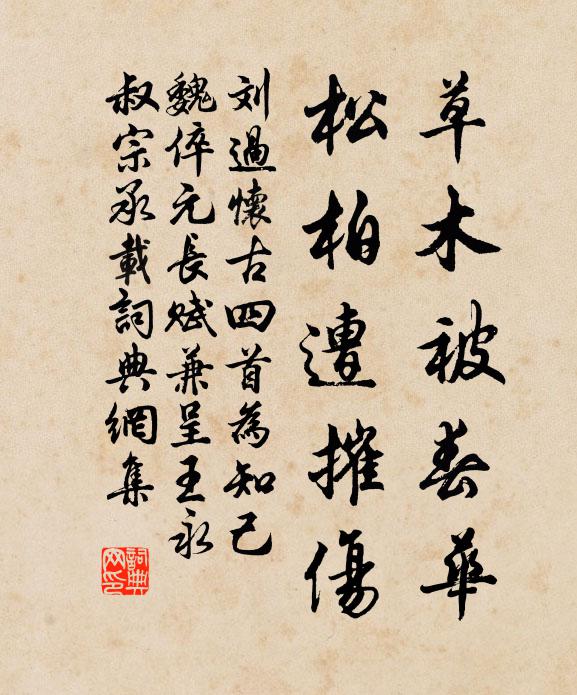 草木被春華
松柏遭摧傷
刘過懷古四首為知己
魏倅元長賦兼呈王永
叔宗丞載詞典網集
詞典网印